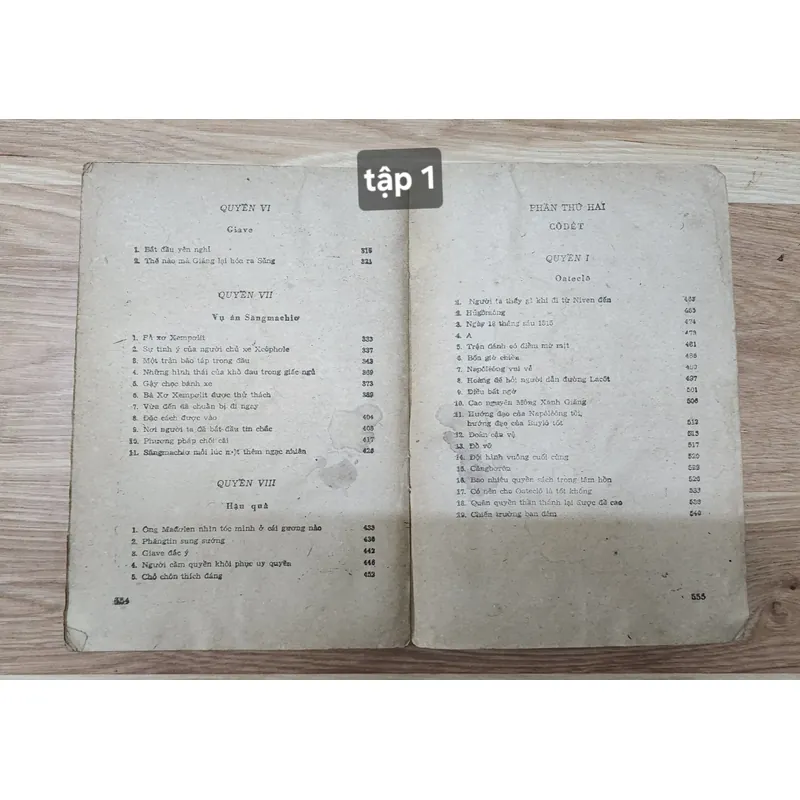 tập 1
QUYỂN VI
Giave
1. Bắt đầu yên nghỉ 316
2. Thế nào mà Giăng lại hóa ra Săng 321
QUYỂN VII
Vụ án Săngmachiơ
1. Bà xơ Xempolit 333
2. Sự tinh ý của người chủ xe Xcôphole 337
3. Một trận bão táp trong đầu 343
4. Những hình thái của khổ đau trong giấc ngủ 369
5. Gậy chọc bánh xe 373
6. Bà Xơ Xempolit được thử thách 389
7. Vừa đến đã chuẩn bị đi ngay
8. Đặc cách được vào 404
9. Nơi người ta đã bắt đầu tin chắc 408
10. Phương pháp chối cãi 417
11. Săngmachiơ mỗi lúc một thêm ngạc nhiên 426
QUYỂN VIII
Hậu quả
1. Ông Mađơlen nhìn tóc mình ở cái gương nào 433
2. Phăngtin sung sướng 436
3. Giave đắc ý 442
4. Người cầm quyền khôi phục uy quyền 446
5. Chỗ chôn thích đáng 452
554
PHẦN THỨ HAI
CÔDÉT
QUYỂN I
Oateclô
1. Người ta thấy gì khi đi từ Niven đến
2. Hugômông 465
3. Ngày 18 tháng sáu 1815 474
4. A 478
5. Trận đánh có điều mờ mịt 481
6. Bốn giờ chiều 486
7. Napôlêông vui vẻ
8. Hoàng đế hỏi người dẫn đường Lacốt 497
9. Điều bất ngờ 501
10. Cao nguyên Mông Xanh Giăng 506
11. Hướng đạo của Napôlêông tồi,
hướng đạo của Buylô tốt 512
12. Đoàn cận vệ 515
13. Đổ vỡ 517
14. Đội hình vuông cuối cùng 520
15. Căngbơrôn 522
16. Bao nhiêu quyển sách trong tâm hồn 526
17. Có nên cho Oateclô là tốt không 533
18. Quân quyền thần thánh lại được đề cao 538
19. Chiến trường ban đêm 540
555